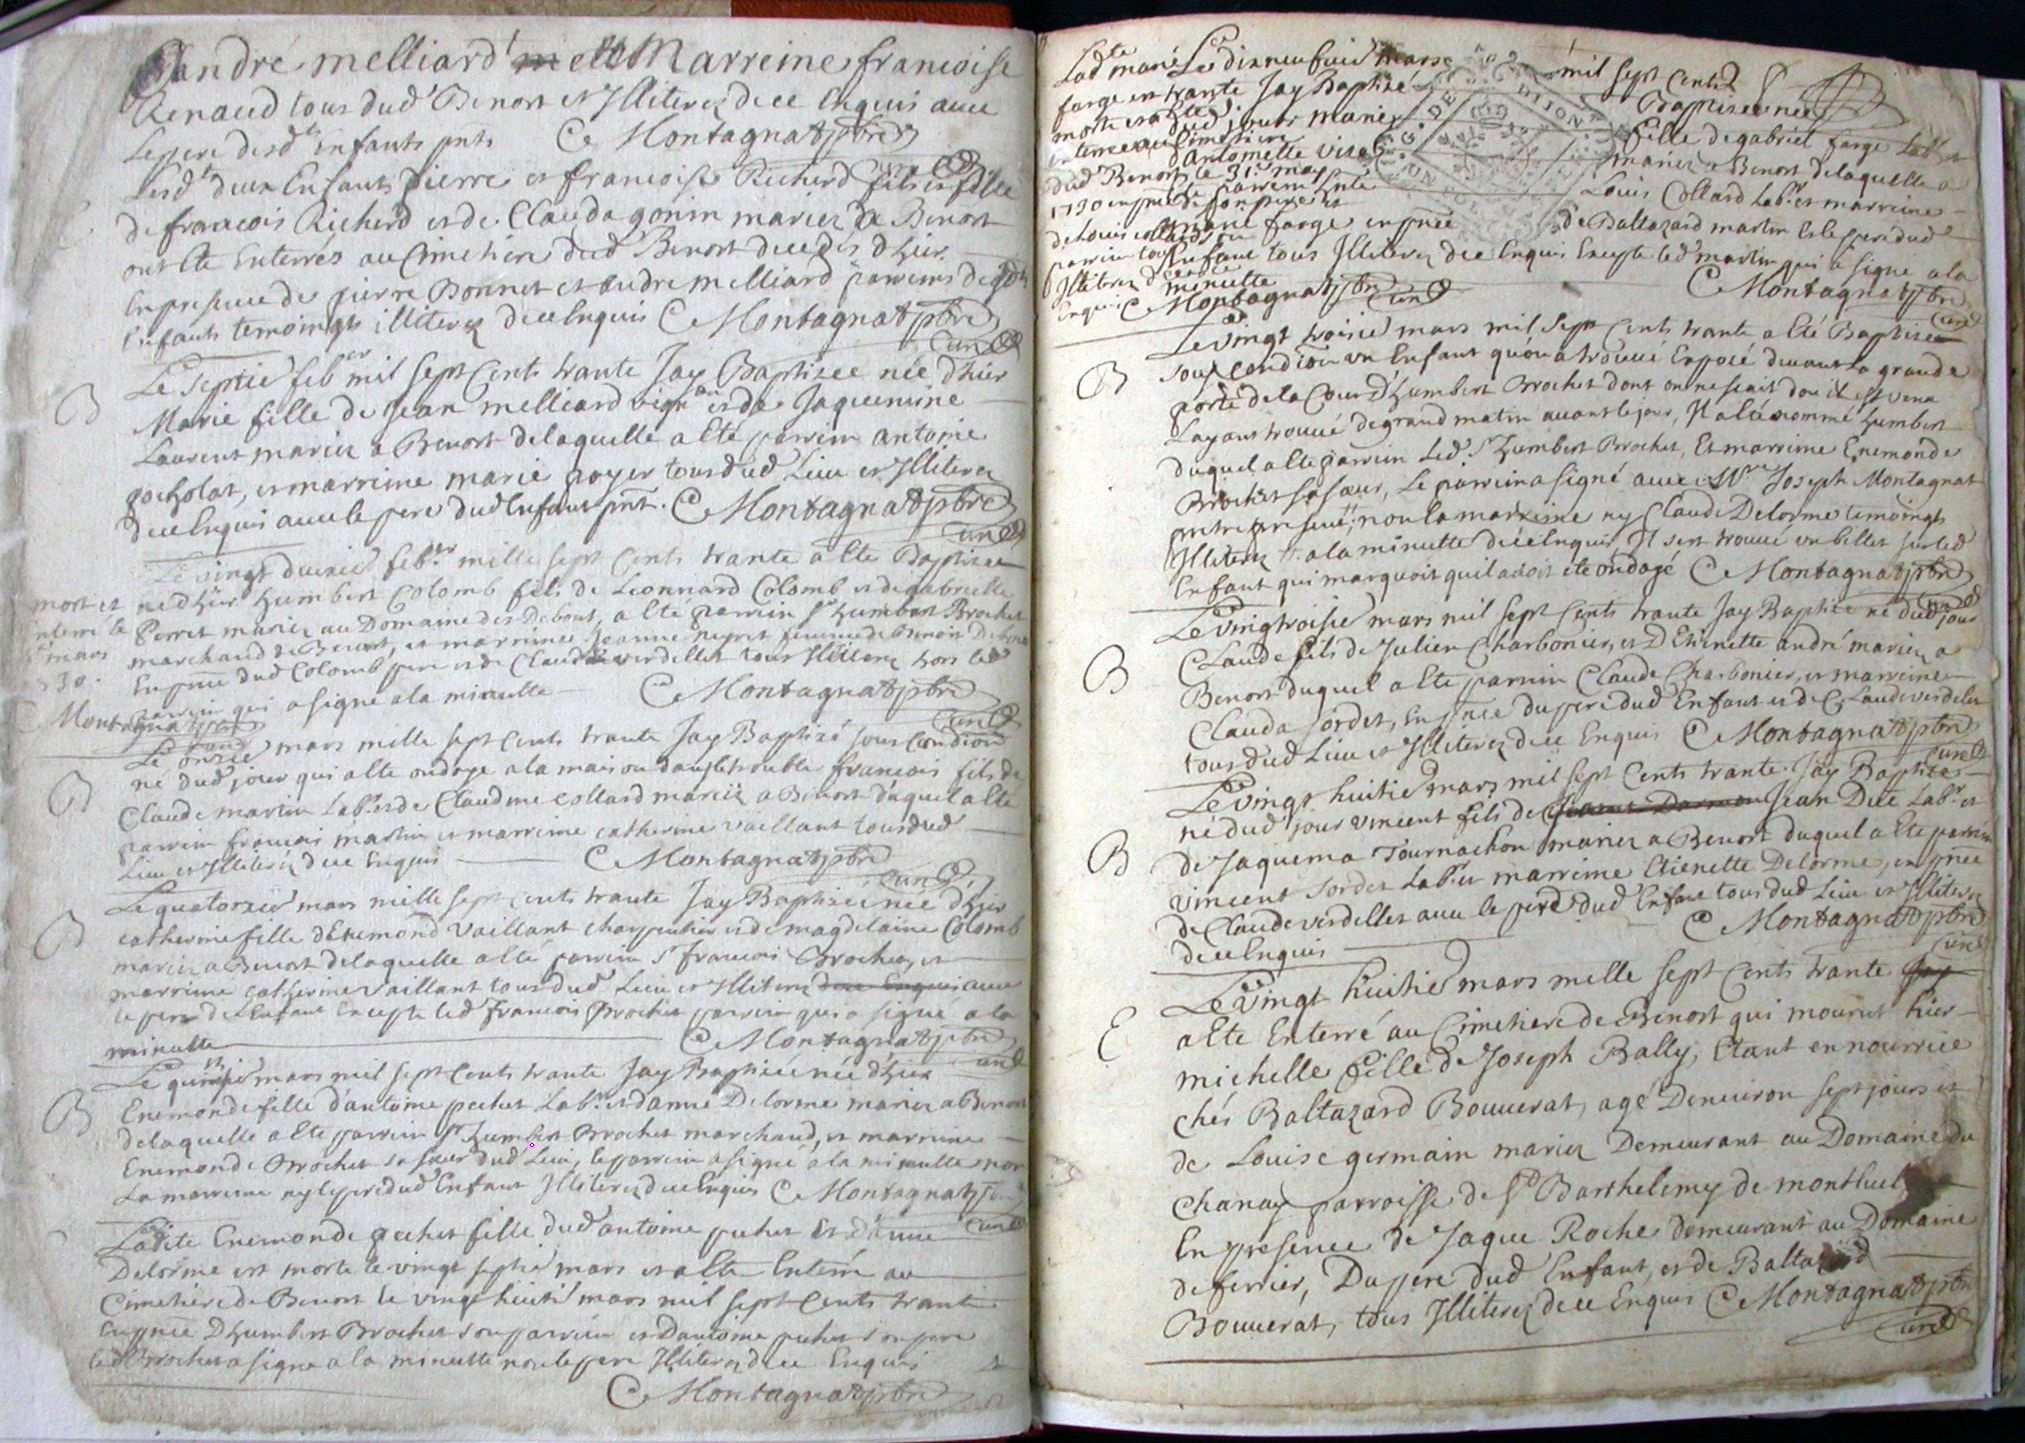 andré melliard et Marreine francoise
Renaud tous dud Benost et Illiterez de ce Enquis avec
le pere desd Enfants pnts C Montagnat ptbre
curé
Lesd deux Enfants pierre et francoise Richerd fils et fille
de francois Richerd et de Clauda gonin mariez a Benost
ont été Enterrés au Cimetiere dud Benost decedés d'hier
En presence de pierre Bonnet et andre melliard parreins desd
Enfants temoings illiterez de ce Enquis C Montagnat ptbre
curé
B
Le septie feber mil sept Cents trante Jay Baptisee née d'hier
Marie fille de Jean melliard vign on et de Jaquemine
Laurent mariez a Benost de laquelle a eté parrein antoine
pocholat, et marreine marie poyer tous dud Lieu et Illiterez
de ce Enquis avec le pere dud Enfant pnt. C Montagnat ptbre
curé
Le vingt duxie feber mille sept Cents trante a eté Baptisee
né d'hier humbert Colomb fils de Leonnard Colomb et de gabrielle
Perret mariez au Domaine des Debost, a eté parrein Sr humbert Brochet
marchand de Benost, et marreine Jeanne negret femme de Benoit
En pnce dud Colomb pere et de Claude verdellet tous Illiterez hors led
parrein qui a signé a la minutte C Montagnat ptbre
curé
mort et
enterré le
mars
30.
Montagnat ptbre
curé
B
Le onzie mars mille sept Cents trante Jay Baptizé sous Condion
né dud jour qui a eté ondoyé a la maison dans le trouble francois fils de
Claude martin Labr et de Claudine Collard mariez a Benost duquel a eté
parrein francois martin et marreine catherine vaillant tous dud
Lieu et Illiterez de ce Enquis C Montagnat ptbre
curé
B
Le quatorzie mars mille sept Cents trante Jay Baptisée née d'hier
catherine fille d'Enemond vaillant charpentier et de magdelaine Colomb
mariez a Benost de laquelle a eté parrein Sr francois Brochet, et
marreine catherine vaillant tous dud Lieu et Illiterez de ce Enquis avec
le pere de l'Enfant Excepté led francois Brochet parrein qui a signé a la
minutte C Montagnat ptbre
curé
B
Le mars mil sept Cents trante Jay Baptisée née d'hier
Enemonde fille d'antoine pechet Labr et d'anne Delorme mariez a Benost
de laquelle a eté parrein Sr humbert Brochet marchand, et marreine
Enemonde Brochet sa sœur dud Lieu, le parrein a signé a la minutte non
La marreine ny le pere dud Enfant Illiterez de ce Enquis C Montagnat ptbre
curé
Ladite Enemonde pechet fille dud antoine pechet et d'anne
Delorme est morte le vingt septie mars et a eté Enterré au
Cimetiere de Benost le vingt huitie mars mil sept Cents trante
En pnce D'humbert Brochet son parrein et D'antoine pechet son pere
led Brochet a signé a la minutte non le pere Illiterez de ce Enquis
C Montagnat ptbre
Ladte marie
farge est
morte et a eté
enterree au Cimetiere
dud Benost le 31e may
1730 en pnce de
de son pere et
de Louis collard son
parrein tous
Illiterez de ce
Enquis C Montagnat ptbre
curé
Le dixneufuie mars mil sept Cents
trante Jay Baptisé Baptisee née
dud jour marie fille de gabriel farge Labr et
d'antoinette mariez a Benost de laquelle a
parrein Louis Collard Labr et marreine
marie farge en pnce de Baltazard martin et le pere dud
Enfant tous Illiterez de ce Enquis Excepté led martin qui a signé a la
minutte C Montagnat ptbre
curé
B
Le vingt troisie mars mil sept Cents trante a eté Baptisee
sous condion un Enfant qu'on a trouvé Exposé devant la grande
porte de la Cour d'humbert Brochet dont on ne scait dou il est venu
Layant trouvé de grand matin avant le jour, Il a eté nommé humbert
duquel a eté parrein Led Sr humbert Brochet, Et marreine Enemonde
Brochet sa sœur, Le parrein a signé avec Mre Joseph Montagnat
pntre non la marreine ny Claude Delorme temoingt
Illiterez a la minutte de ce Enquis, Il sest trouvé un billet sur led
Enfant qui marquoit quil avoit eté ondoyé C Montagnat ptbre
curé
B
Le vingtroisie mars mil sept Cents trante Jay Baptisé né dud jour
Claude fils de Julien Charbonier, et D'Etienette andré mariez a
Benost duquel a eté parrein Claude Charbonier, et marreine
Clauda sordet, En pnce du pere dud Enfant et de Claude verdellet
tous dud Lieu et Illiterez de ce Enquis C Montagnat ptbre
curé
B
Le vingt huitie mars mil sept Cents trante Jay Baptisé
né dud jour vincent fils de Jean Duc Labr et
de Jaquema Tournachon mariez a Benost duquel a eté parrein
vincent sordet Labr et marreine Etienette Delorme, en pnce
de Claude verdellet avec le pere dud Enfant tous dud Lieu et Illiterez
de ce Enquis C Montagnat ptbre
curé
E
Le vingt huitie mars mille sept Cents trante Jay
a eté Enterré au Cimetiere de Benost qui mourut hier
michelle fille de Joseph Bally, Etant en nourrice
chés Baltazard Bouverat, agé Denviron sept jours et
de Louise germain mariez Demeurant au Domaine du
Chanay parroisse de St Barthelemy de montluel
En presence de Jaque Roche demeurant au Domaine
de ferrier, Du pere dud Enfant, et de Baltazard
Bouverat, tous Illiterez de ce Enquis C Montagnat ptbre
curé